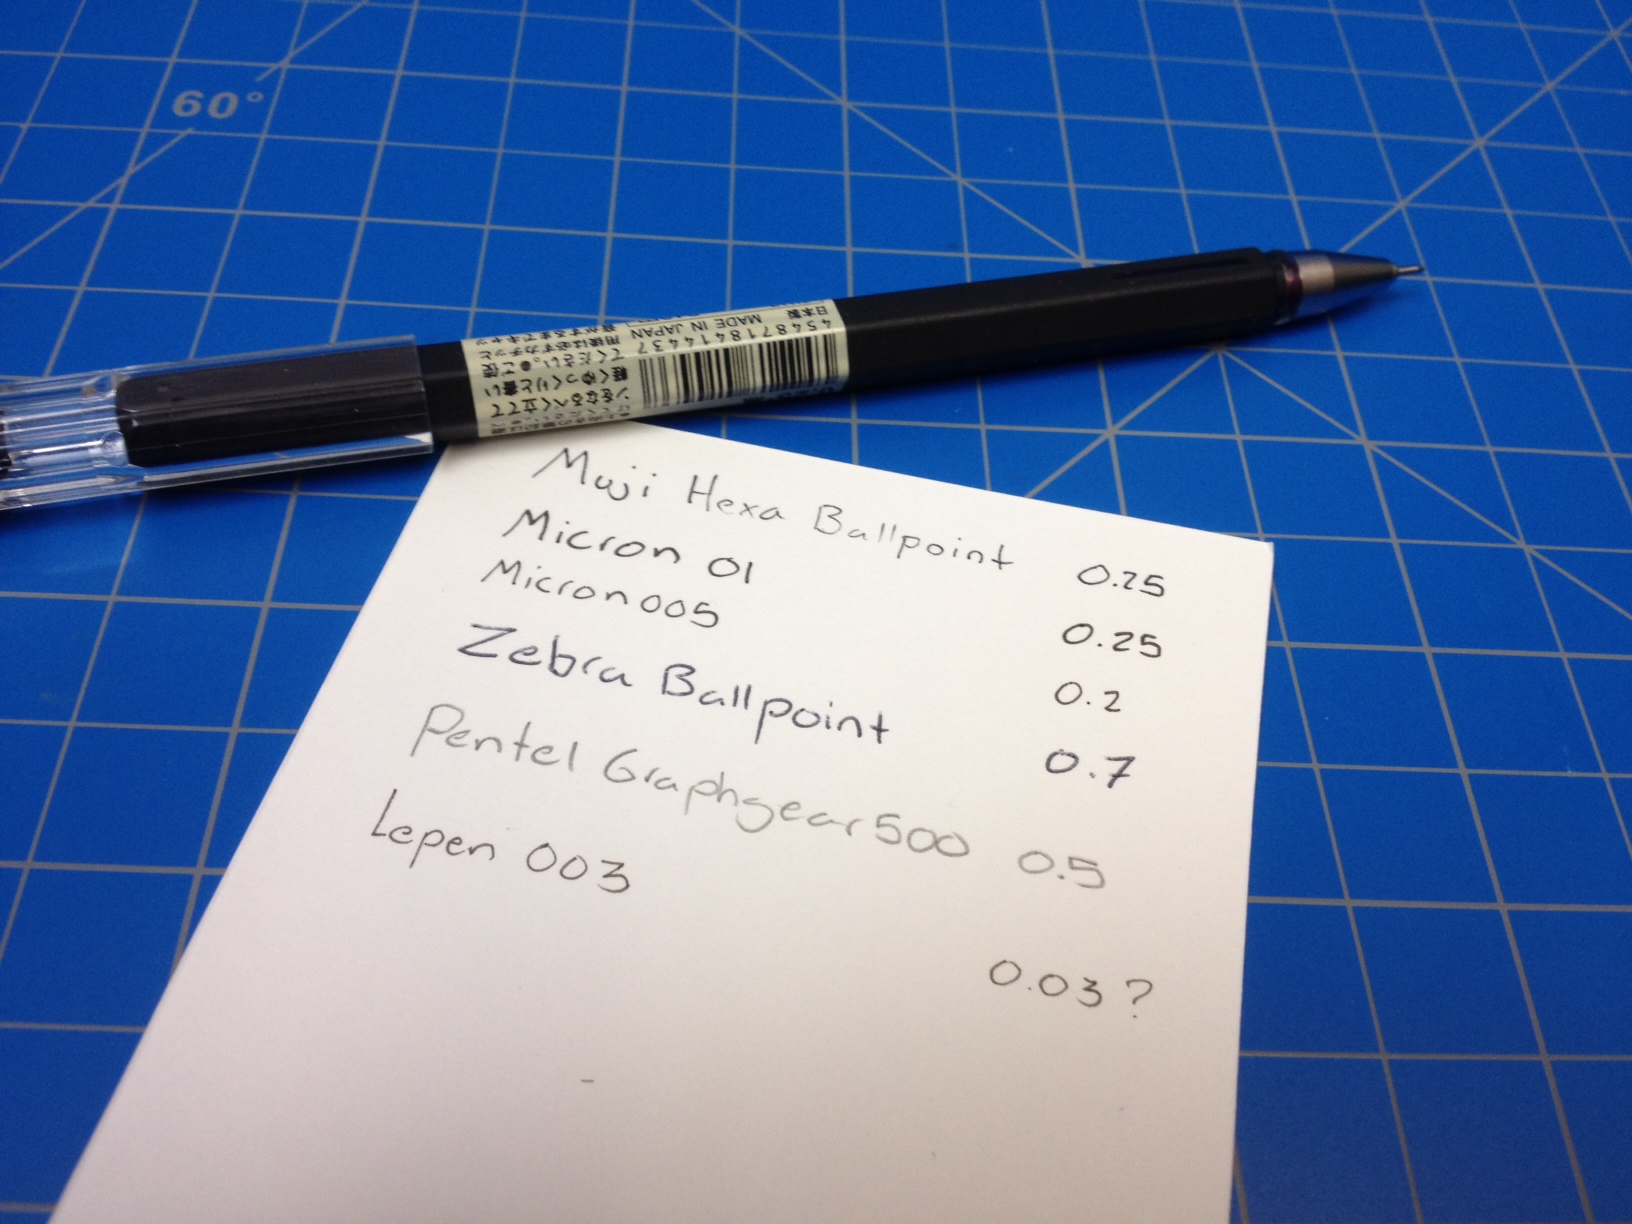 60°
日本製
4548718414437
MADE IN JAPAN
Muji Hexa Ballpoint 0.25
Micron 01 0.25
Micron 005 0.2
Zebra Ballpoint 0.7
Pentel Graphgear 500 0.5
Lepen 003 0.03?